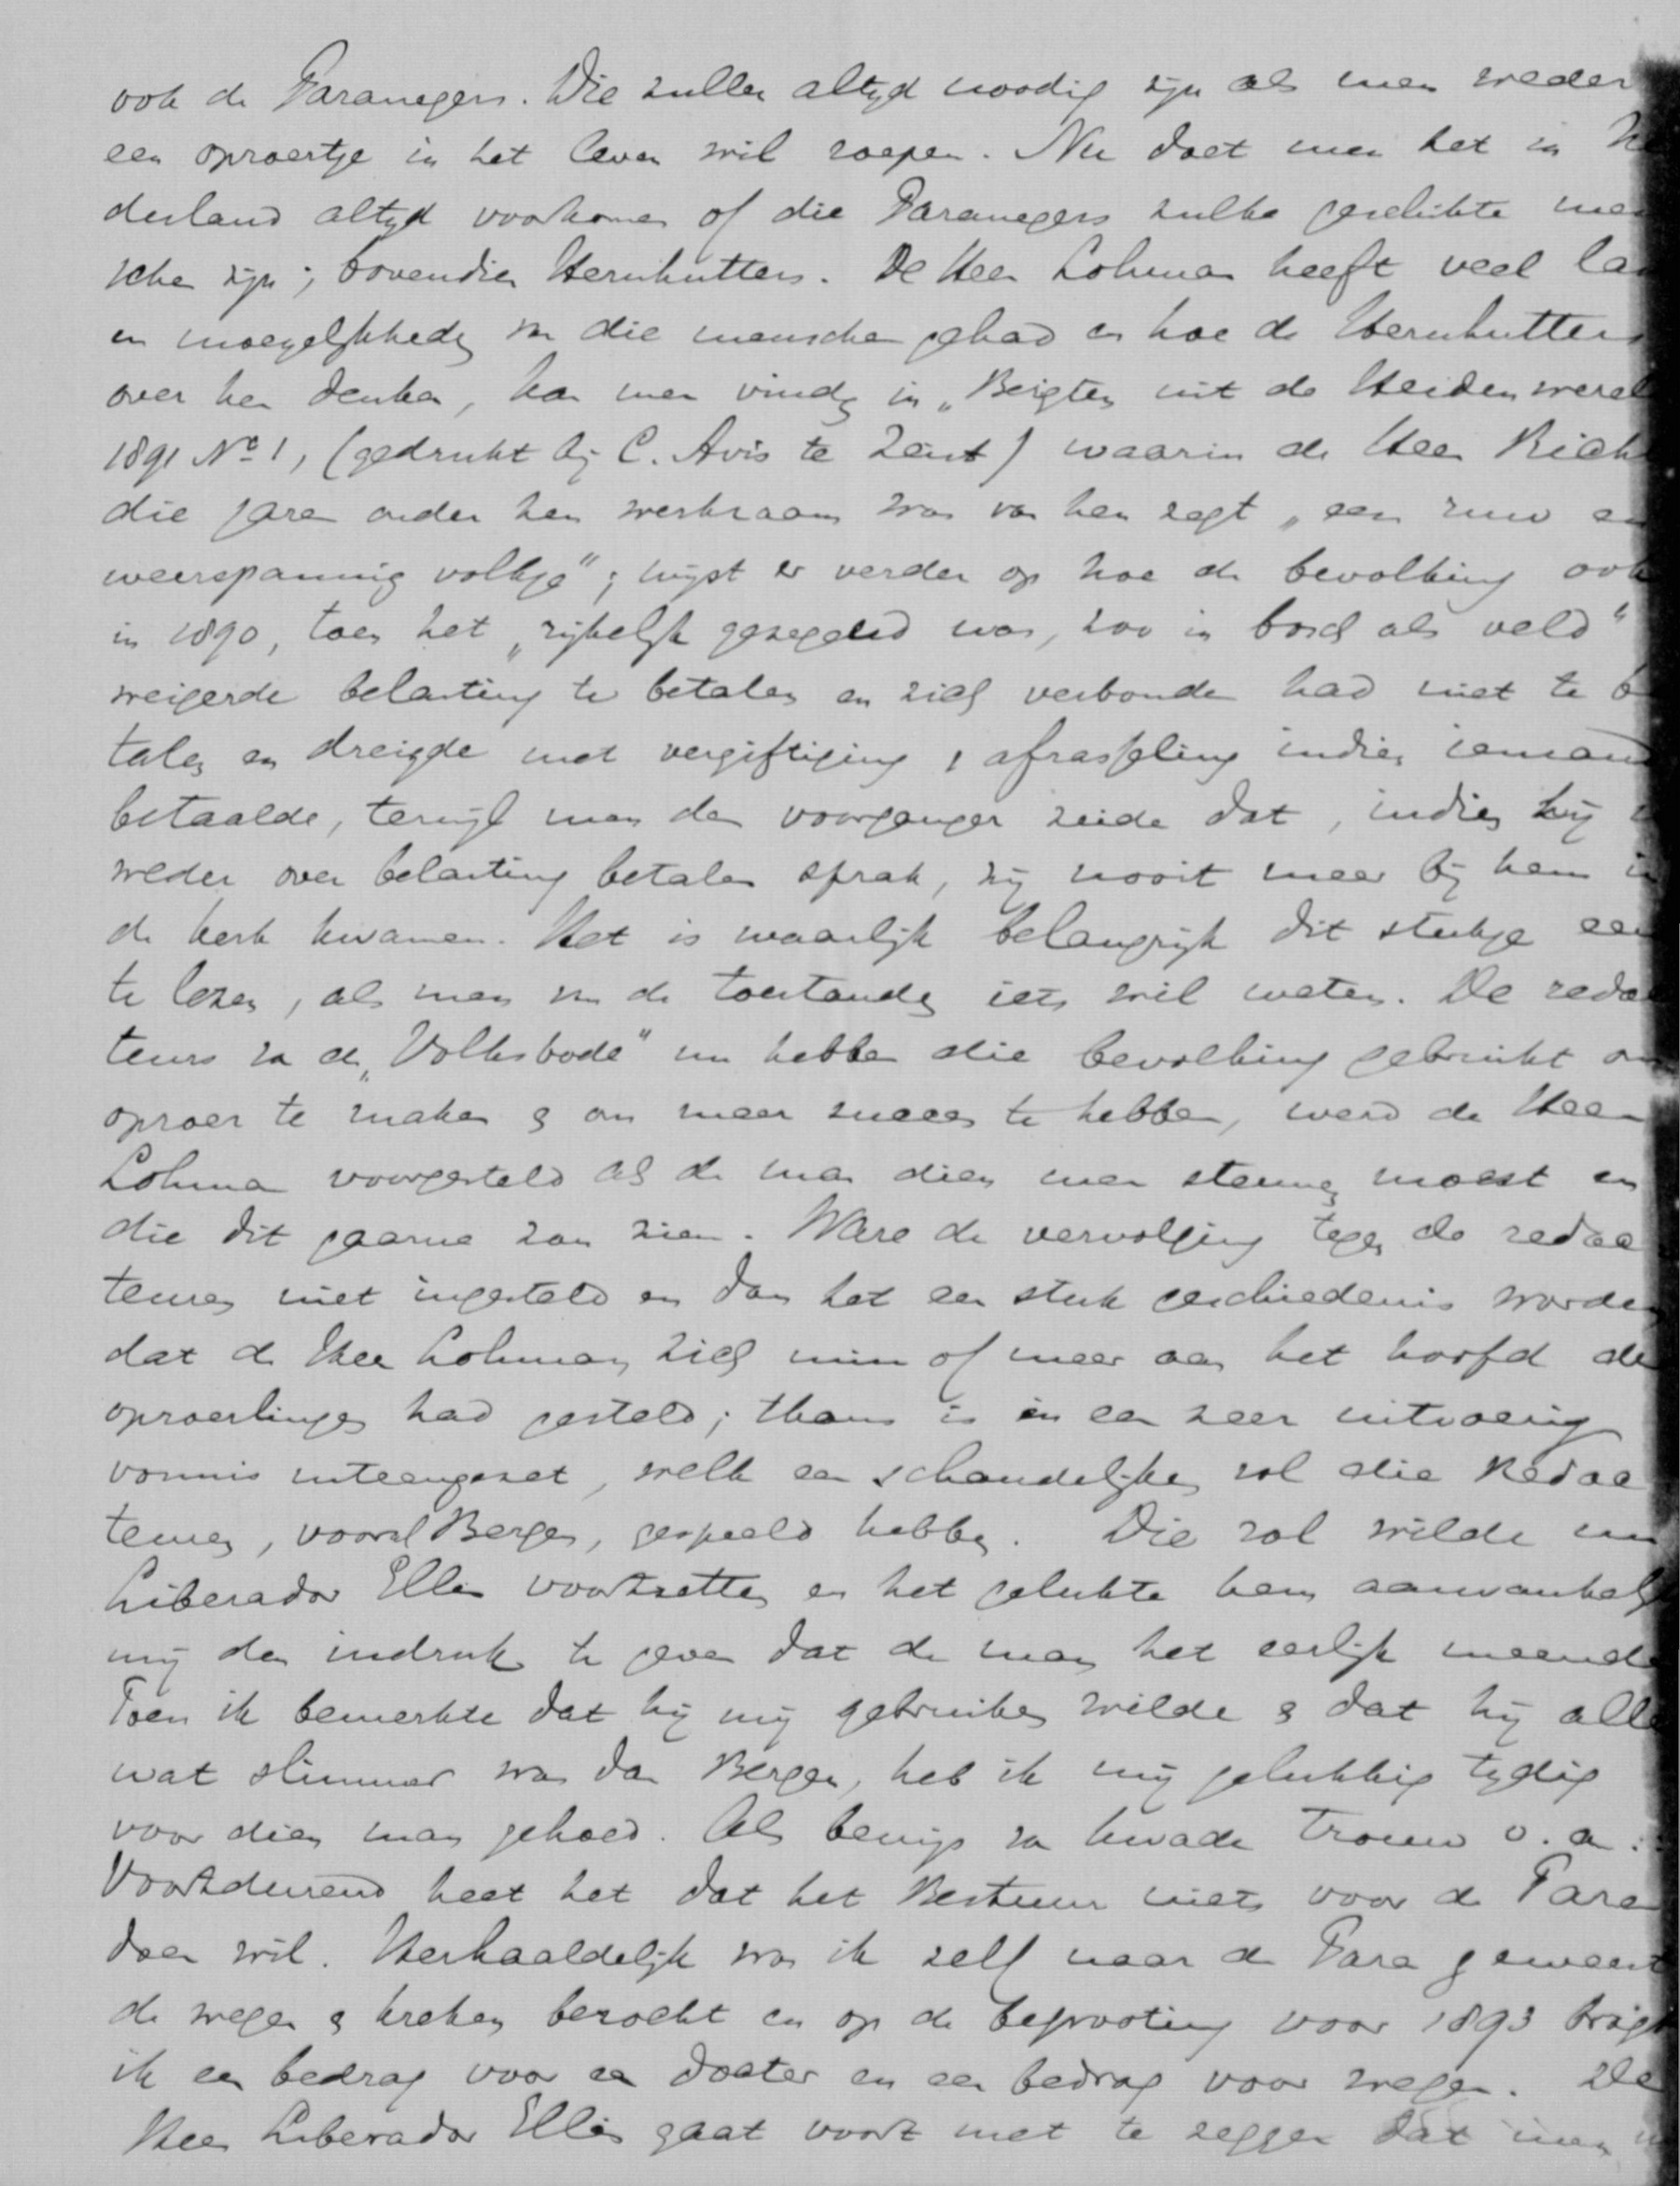 ook de Paranegers. Die zullen altyd noodig zyn als men weder
een oproertje in het leven wil roepen. Nu doet men het in Ne
derland altyd voorkomen of die Paranegers zulke geschikte men
schen zyn; bovendien Hernhutters. De Heer Lohman heeft veel las
en moeyelykheden van die menschen gehad en hoe de Hernhutters
over hen denken, kan men vinden in „Berigten uit de Heidenwereld
1891 No 1, (gedrukt bij C. Avis te Zeist) waarin de Heer
die jaren onder hen werkzaam was van hen zegt „een ruw en
weerspannig volkje"; wijst er verder op hoe de bevolking ook
in 1890, toen het „rijkelyk gezegend was, zoo in bosch als veld"
weigerde belasting te betalen en zich verbonden had niet te be
talen en dreigde met vergiftiging, afrasseling indien iemand
betaalde, terwijl men den voorganger zeide dat, indien hij
weder over belasting betalen sprak, zij nooit meer bij hem in
de kerk kwamen. Het is waarlijk belangrijk dit stukje eens
te lezen, als men van de toestanden iets wil weten. De redac
teurs van de „Volksbode" nu hebben die bevolking gebruikt om
oproer te maken & om meer succes te hebben, werd de Heer
Lohman voorgesteld als de man dien men steunen moest en
die dit gaarne zou zien. Ware de vervolging tegen de redac
teuren niet ingesteld en dan het een stuk geschiedenis worden
dat de Heer Lohman zich min of meer aan het hoofd der
oproerlingen had gesteld; thans is in een zeer uitvoerig
vonnis uiteengezet, welk een schandelyken rol die Redac
teuren, vooral Bergen, gespeeld hebben. Die rol wilde nu
Liberador Ellis voortzetten en het gelukte hem aanvankelyk
mij den indruk te geven dat de man het eerlijk meende
Toen ik bemerkte dat hij mij gebruiken wilde & dat hij alle
wat slimmer was dan Bergen, heb ik mij gelukkig tydig
voor dien man gehoed. Als bewijs van kwade trouw o.a.:
Voortdurend heet het dat het Bestuur niets voor de Para
doen wil. Herhaaldelijk was ik zelf naar de Para geweest
de wegen & kreken bezocht en op de begrooting voor 1893 bragt
ik een bedrag voor een docter en een bedrag voor wegen. De
Heer Liberador Ellis gaat voort met te zeggen dat men